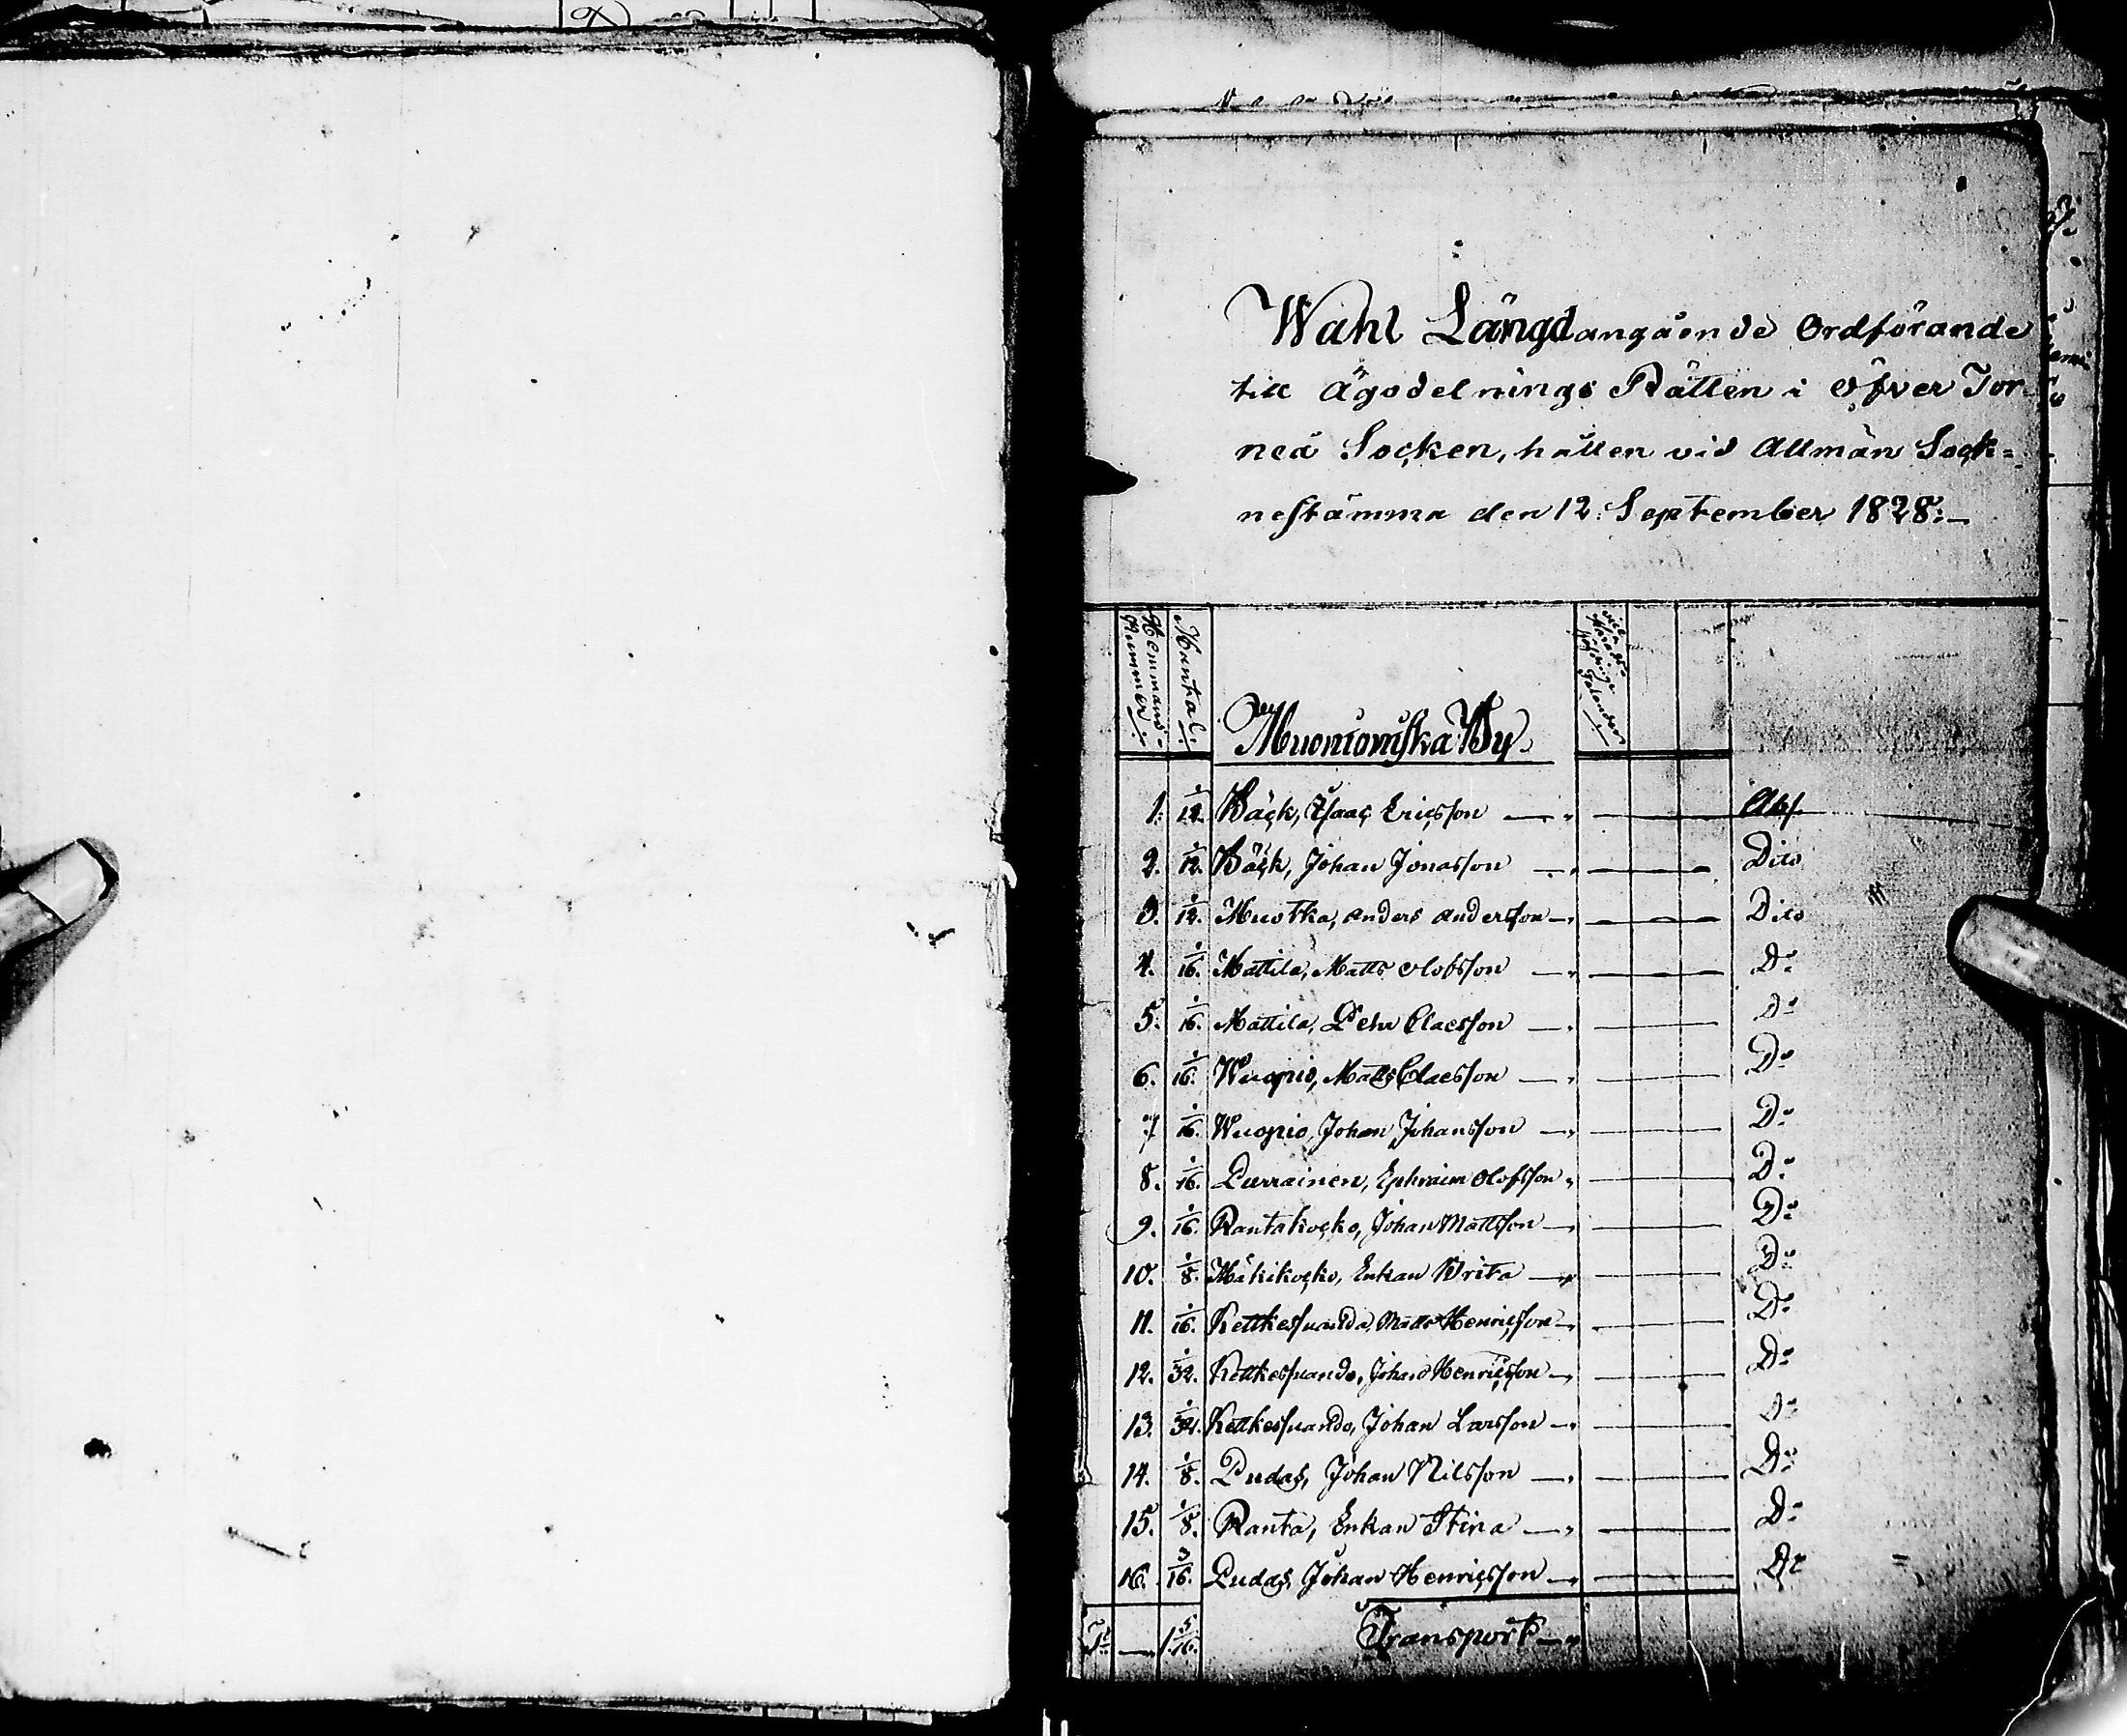 Wahl Längd angående Ordförande
till Ägodelnings Rätten i Öfver Tor-
neå Socken, hållen vid Allmän Sock=
nestämma den 12. September 1828:
Hemmans-
Nummer:
Mantal:
Muonioniska By.
1. 1/12. Bäck, Isaac Ericsson — Abs.
2. 1/12. Bäck, Johan Jonasson — Dito
3. 1/12. Muotka, Anders Andersson — Dito
4. 1/16. Mattila, Matts Olofsson — Do
5. 1/16. Mattila, Pehr Claesson — Do
6. 1/16. Wuopio, Matts Claesson — Do
7. 1/16. Wuopio, Johan Johansson — Do
8. 1/16. Purrainen, Ephraim Olofsson — Do
9. 1/16. Rantakocko, Johan Mattsson — Do
10. 1/8. Mäkikocko, Enkan Brita — Do
11. 1/16. Kettkesuando, Matts Henricsson — Do
12. 1/32. Kettkesuando, Johan Henricsson — Do
13. 1/32. Kettkesuando, Johan Larsson — Do
14. 1/8. Pudas, Johan Nilsson — Do
15. 1/8. Ranta, Enkan Stina — Do
16. 3/16. Pudas, Johan Henricsson — Do
Tr — 1 5/16. Transport —